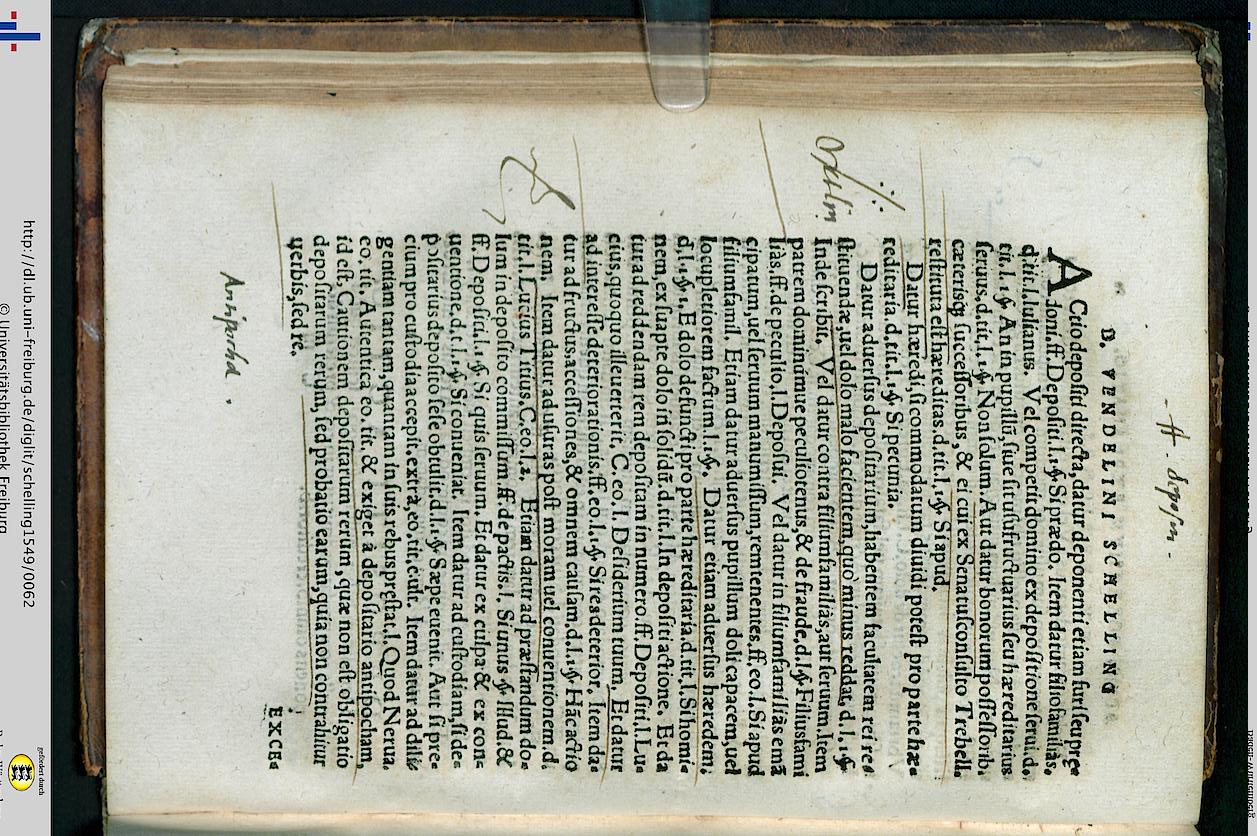 D. VENDELINI SCHELLING
ACtio depositi directa, datur deponenti etiam furi seu præ
doni. ff. Depositi. l. 1. §. Si prædo. Item datur filiofamiliâs.
d. tit. l. Iulianus. Vel competit domino ex depositione serui. d.
tit. l. 1. §. An in pupillũ, siue sit usufructuarius seu hæreditarius
seruus, d. tit. l. 1. §. Non solum. Aut datur bonorum possessorib.
cæterisq́; successoribus, & ei cui ex Senatusconsulto Trebell.
restituta est hæreditas. d. tit. l. 1. §. Si apud.
Datur hæredi, si commodatum diuidi potest pro parte hæ=
reditaria. d. tit. l. 1. §. Si pecunia.
Datur aduersus depositarium, habentem facultatem rei re=
stituendæ, uel dolo malo facientem, quo minus reddat, d. l. 1. §.
Inde scribit. Vel datur contra filiumfamiliâs, aut seruum. Item
patrem dominúmue peculiotenus, & de fraude. d. l. §. Filiusfami
liâs. ff. de peculio. l. Deposui. Vel datur in filiumfamiliâs emã
cipatum, uel seruum manumissum, rem tenentes. ff. eo. l. Si apud
filiumfamil. Etiam datur aduersus pupillum doli capacem, uel
locupletiorem factum. l. 1. §. Datur etiam aduersus hæredem.
d. l. 1. §. E dolo defuncti pro patre hæreditaria. d. tit. l. Si homi=
nem, ex suapte dolo in solidũ. d. tit. l. In depositi actione. Et da
tur ad reddendam rem depositam in numero. ff. Depositi. l. Lu=
cius. quoque illeuenerit, C. eo. l. Desiderium tuum. Et datur
ad interesse deteriorationis. ff. eo. l. 1. §. Si res deterior. Item da=
tur ad fructus, accessiones, & omnem causam. d. l. 1. §. Hãc actio
nem. Item datur ad usuras post moram uel conuentionem. d.
tit. l. Lucius Titius. C. eo. l. 2. Etiam datur ad præstandum do=
lum in deposito commissum. ff. de pactis. l. Si unus. §. Illud. &
ff. Depositi. l. 1. §. Si quis seruum. Et datur ex culpa & ex con=
uentione. d. t. l. 1. §. Si conueniat. Item datur ad custodiam, si de=
positarius deposito sese obtulit. d. l. 1. §. Sæpe euenit. Aut si pre=
cium pro custodia accepit. extrà, eo. tit. c. ult. Item datur ad dili=
gentiam tantam, quantam in suis rebus prestat. l. Quod Nerua.
eo. tit. Autentica eo. tit. & exiget à depositario antipocham,
id est, Cautionem depositarum rerum, quæ non est obligatio
depositarum rerum, sed probatio earum, quia non contrahitur
uerbis, sed re.
EXCE=
Antipocha.
http://dl.ub.uni-freiburg.de/diglit/schelling1549/0062
© Universitätsbibliothek Freiburg
gefördert durch